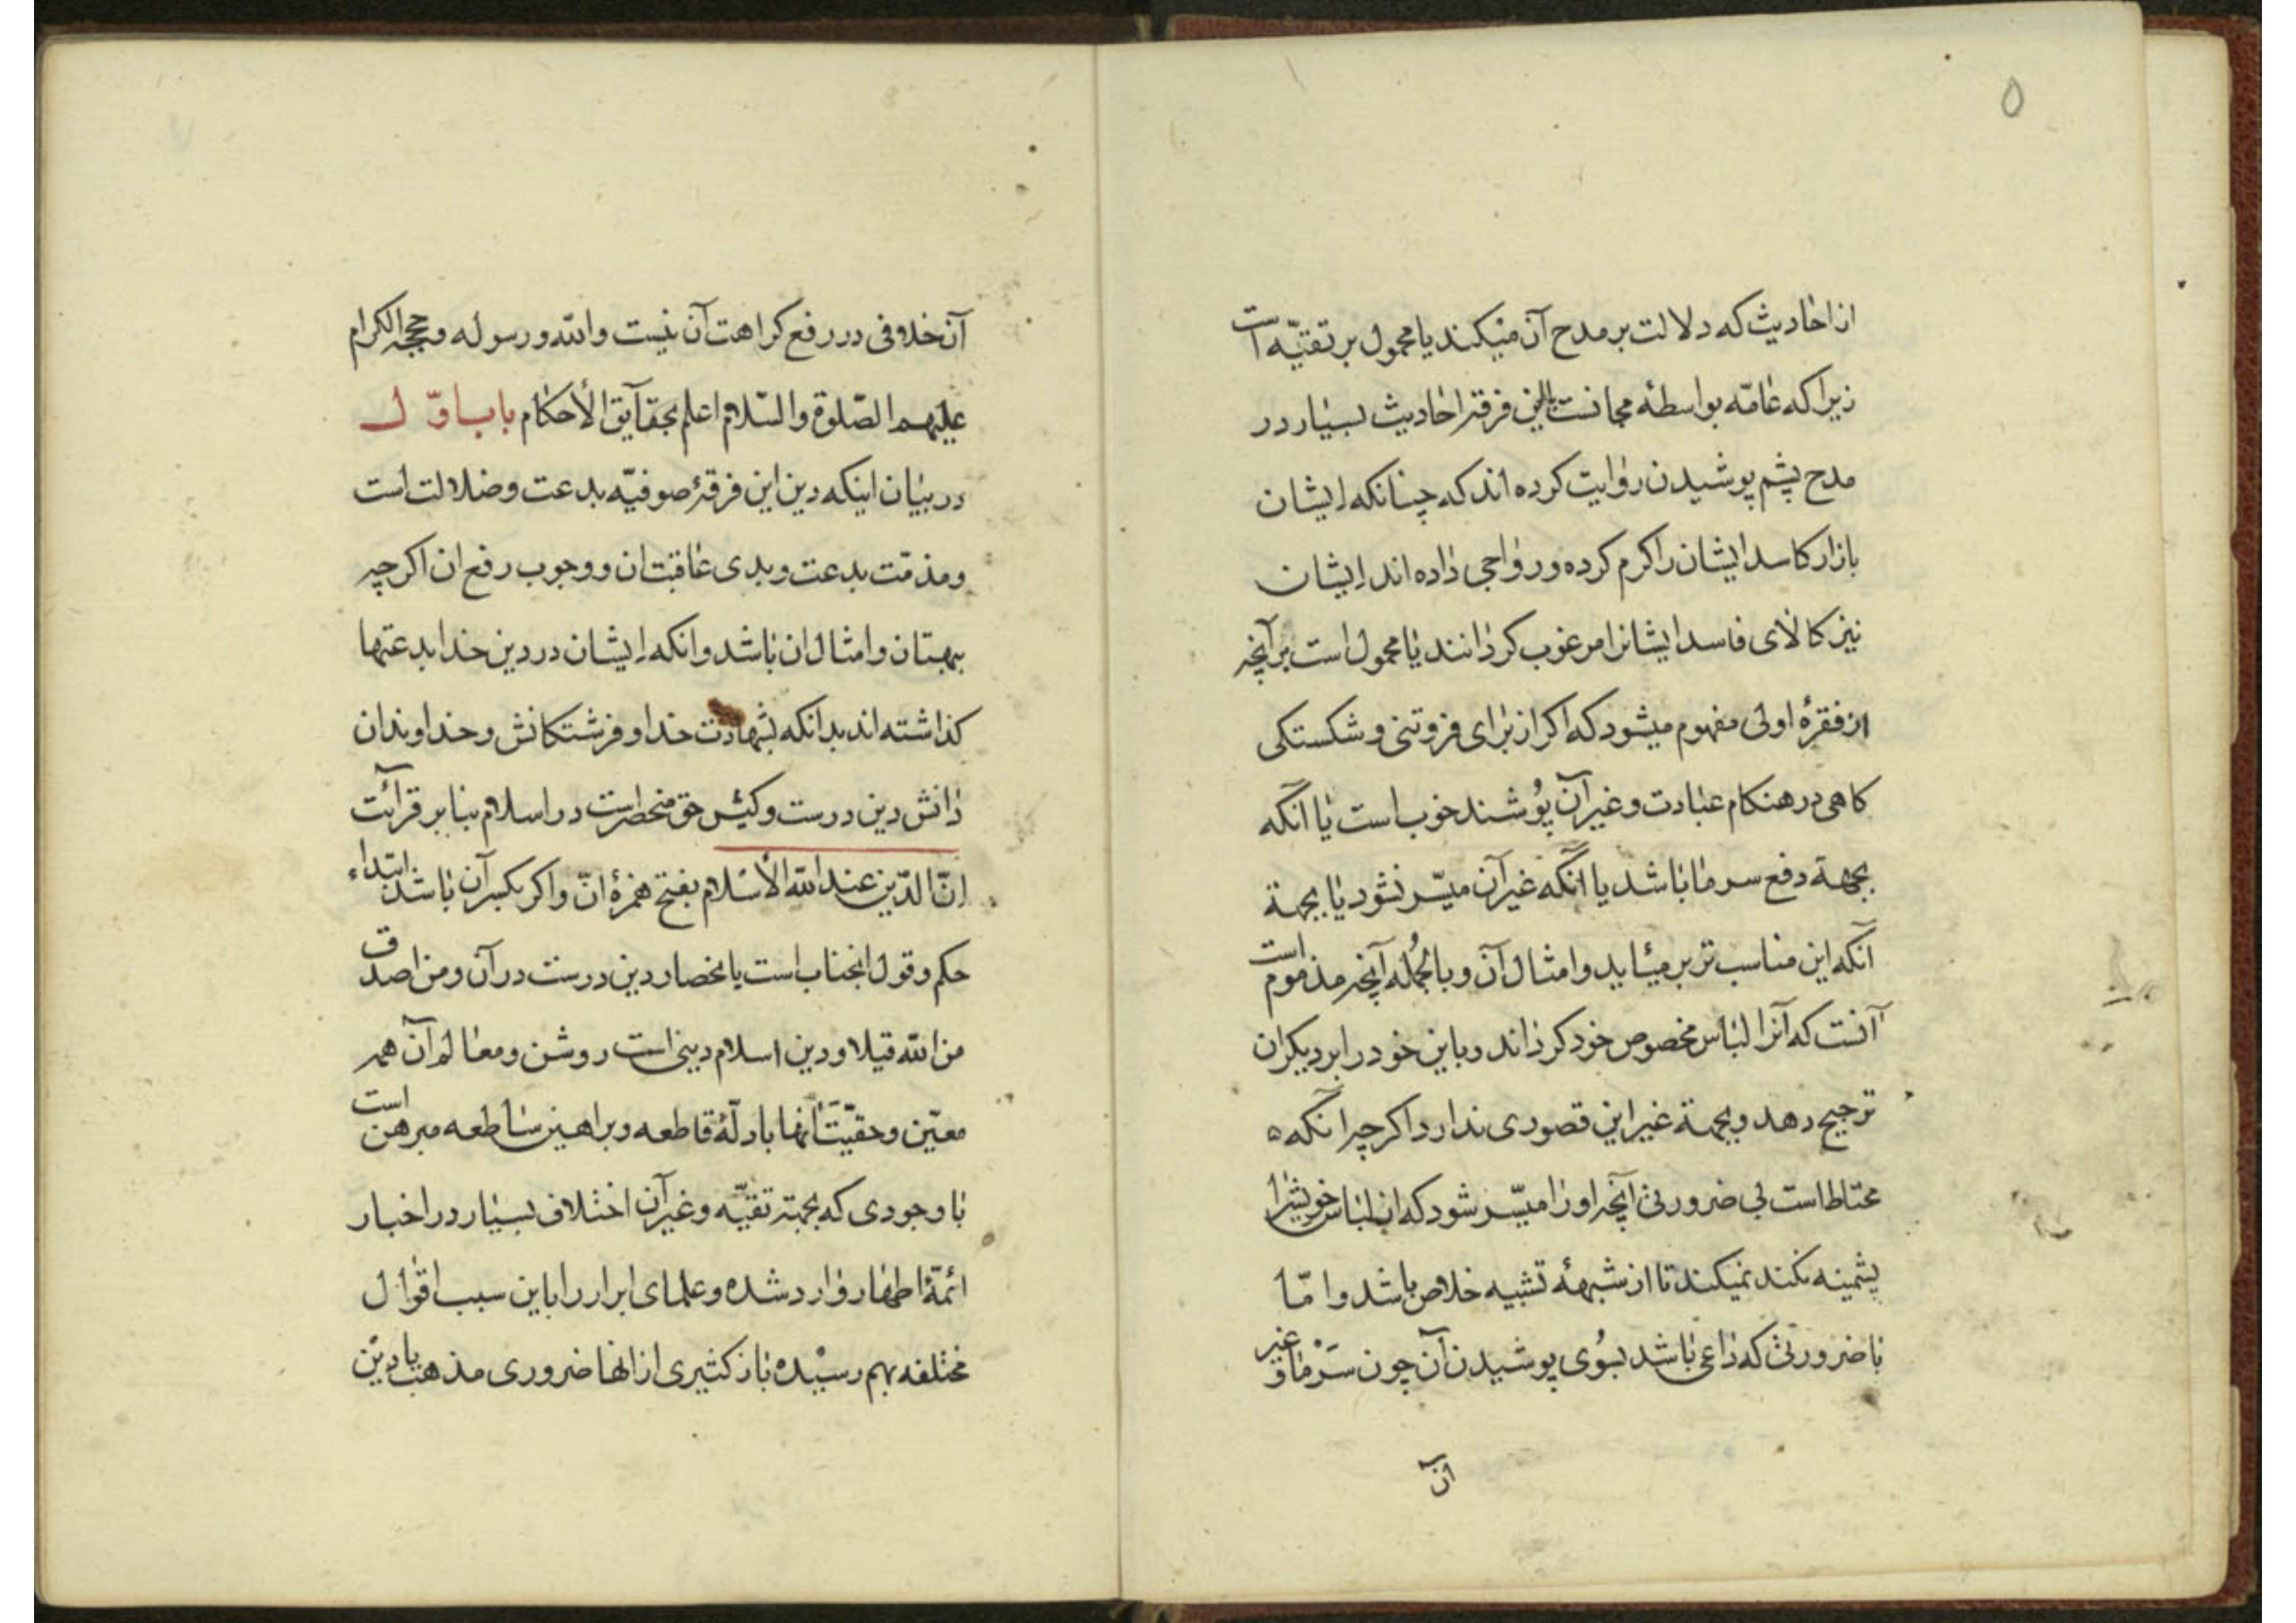 ۵
از احادیث که دلالت بر مدح آن میکند یا محمول بر تقیّه است
زیرا که عامّه بواسطهٔ مجانست باین فرقه احادیث بسیار در
مدح پشم پوشیدن روایت کرده اند که چنانکه ایشان
بازار کاسد ایشان را کرم کرده و رواجی داده اند ایشان
نیز کالای فاسد ایشانرا مرغوب کردانند یا محمول است بر آنچه
از فقرهٔ اولی مفهوم میشود که اکر از برای فروتنی و شکستکی
کاهی در هنکام عبادت و غیر آن پوشند خوب است یا آنکه
بجهة دفع سرما باشد یا آنکه غیر آن میسّر نشود یا بجهة
آنکه این مناسب تر بر میٔاید و امثال آن و بالجُمله آنچه مذموم است
آنست که آنرا لباس مخصوص خود کرداند و باین خود را بر دیکران
ترجیح دهد و بجهة غیر این قصوری ندارد اکرچه آنکه ه
محتاط است بی ضرورتی آنچه او را میسّر شود که از لباس خویش را
پشمینه نکند نمیکند تا از شبههٔ تشبیه خلاص باشد و امّا
با ضرورتی که داعی باشد بسُوی پوشیدن آن چون سَرْما و غیر
آن
آن خلافی در رفع کراهت آن نیست والله و رسوله و حججه الکرام
علیهم الصّلوة والسّلام اعلم بحقآیق الأحکام باب اوّل
در بیان اینکه دین این فرقهٔ صوفیّه بدعت و ضلالت است
و مذمّت بدعت و بدی عاقبت ان و وجوب رفع ان اکرچه
ببهتان و امثال ان باشد و انکه ایشان در دین خدا بدعتها
کذاشته اند بدانکه بشهادت خدا و فرشتکانش و خداوندان
دانش دین درست و کیش حق منحصر است در اسلام بنا بر قرآئت
انّ الدّین عند الله الأسلام بفتح همزهٔ انّ و اکر بکسر آن باشد ابتداء
حکم و قول انجناب است بانحصار دین درست در آن و من اصدق
من الله قیلا و دین اسلام دینی است روشن و معالم آن همه
معیّن و حقیّت آنها بادلّهٔ قاطعه و براهین ساطعه مبرهن است
با وجودی که بجهته تقیّه و غیر آن اختلاف بسیار در اخبار
ائمّهٔ اطهار وارد شده و علمای ابرار را باین سبب اقوال
مختلفه بهم رسیْده باز کثیری از انها ضروری مذهب یا دیْن